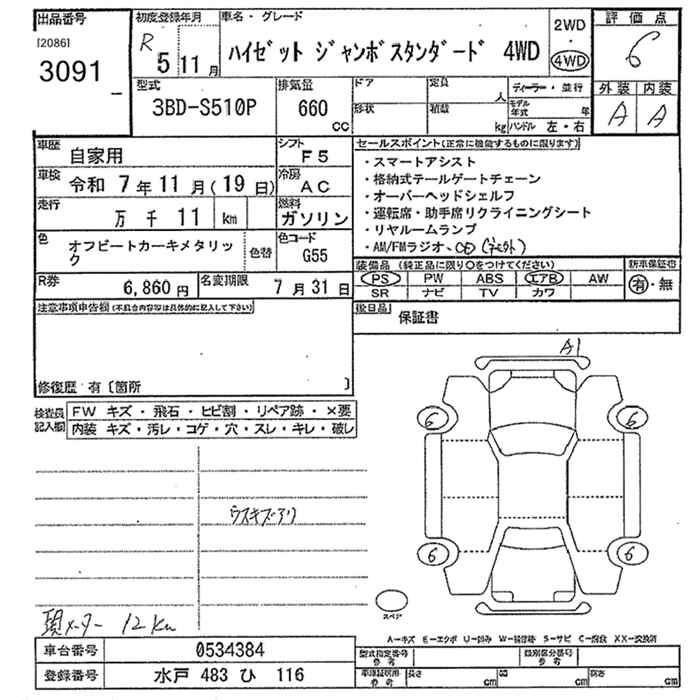 出品番号 初度登録年月 車名・グレード 2WD ・ 4WD 評価点
[2086] 3091 R 5 11月 ハイゼット ジャンボスタンダード 4WD 6
型式 排気量 ドア 定員 人 ディーラー・並行 外装 内装
3BD-S510P 660 CC 形状 積載 kg モデル年式 年 ハンドル 左・右 A A
車歴 自家用 シフト F5
車検 令和 7年11月(19日) 冷房 AC
走行 万 千 11 km 燃料 ガソリン
色 オフビートカーキメタリック 色替 色コード G55
R券 6,860円 名変期限 7月31日
セールスポイント(正常に機能するものに限ります)
・スマートアシスト
・格納式テールゲートチェーン
・オーバーヘッドシェルフ
・運転席・助手席リクライニングシート
・リヤルームランプ
・AM/FMラジオ、CD
装備品 (純正品に限り○をつけてください) 新車保証書
PS PW ABS エアB AW 有・無
SR ナビ TV カワ
後日品 保証書
注意事項申告欄(不具合内容等は具体的に記入して下さい)
修復歴 有〔箇所 〕
検査員記入欄 FW キズ・飛石・ヒビ割・リペア跡・×要
内装 キズ・汚レ・コゲ・穴・スレ・キレ・破レ
A1
6 6
ウスキズアリ
6 6
スペア
メーター 12km
A-キズ E-エクボ U-凹み W-補修跡 S-サビ C-腐食 XX-交換済
車台番号 0534384 型式指定番号 参考 類別区分番号 参考
登録番号 水戸 483 ひ 116 車庫証明用 参考 長さ cm 幅 cm 高さ cm